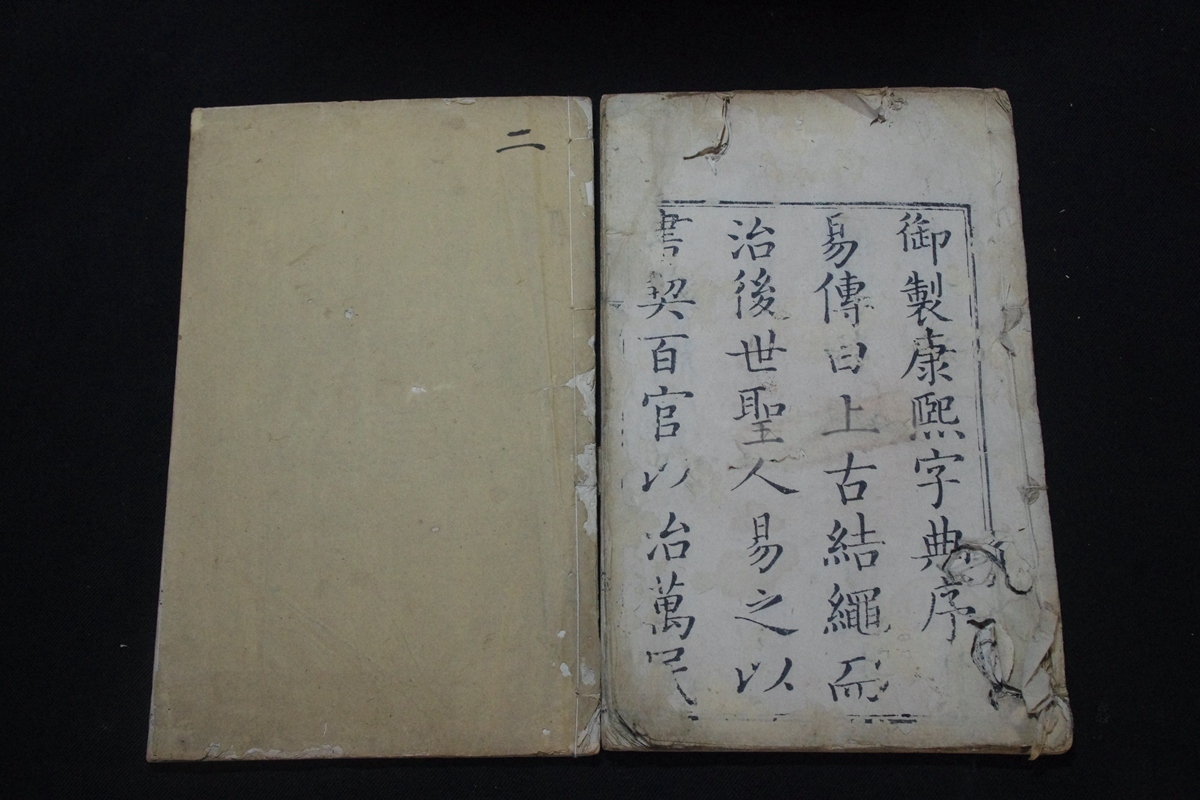 御製康熙字典序
易傳曰上古結繩而
治後世聖人易之以
書契百官以治萬民
二